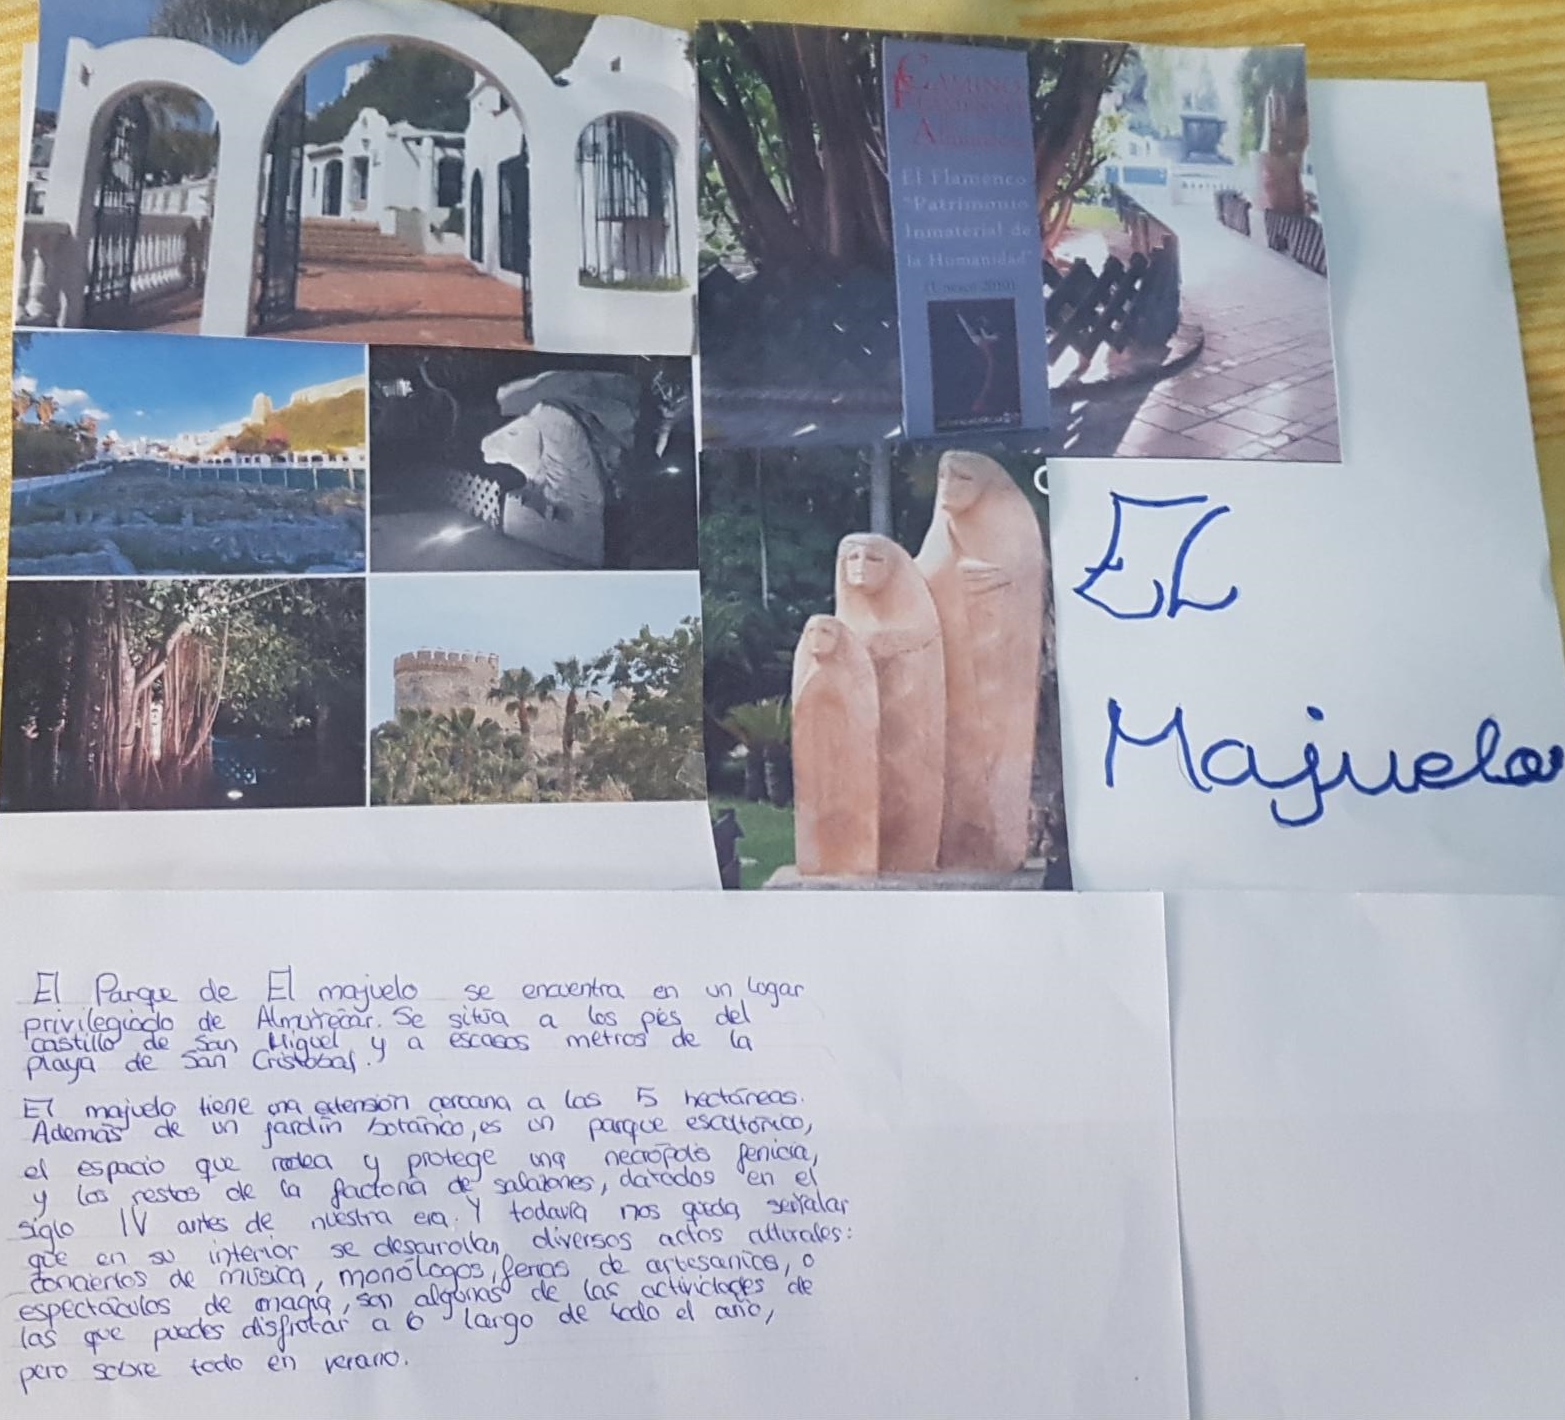 CAMINO
FLAMENCO
El Flamenco
"Patrimonio
Inmaterial de
la Humanidad"
EL
Majuelo
El Parque de El majuelo se encuentra en un lugar
privilegiado de Almuñecar. Se sitúa a los pies del
castillo de San Miguel y a escasos metros de la
playa de San Cristobal.
El majuelo tiene una extensión cercana a las 5 hectáreas.
Además de un jardín botánico, es un parque escultórico,
el espacio que rodea y protege una necrópolis fenicia,
y los restos de la factoria de salazones, datados en el
siglo IV antes de nuestra era. Y todavía nos queda señalar
que en su interior se desarrollan diversos actos culturales:
conciertos de música, monólogos, ferias de artesanías, o
espectáculos de magia, son algunas de las actividades de
las que puedes disfrutar a lo largo de todo el año,
pero sobre todo en verano.